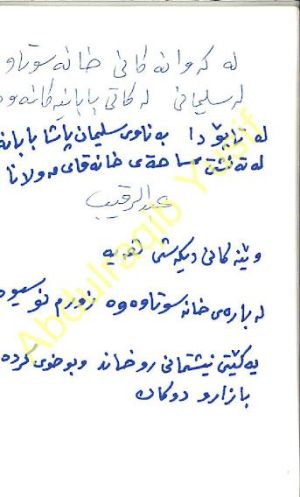 له کهوانه کانی خانه سوتاو
له سلیمانی له کاتی بابانیه کانهوه
له تاپۆ دا به ناوی سلیمان پاشا بابانه
له ته نشتی ساحهی خانه قای مه ولانا
عبدالرقیب
وێنه کانی دیکه شی ههیه
له بارهی خانه سوتاوهوه زۆرم نوسیوه
یه کێتی نیشتمانی روخاند وبوخوی کرده
بازارو دوکان
Abdulraqib Yusif